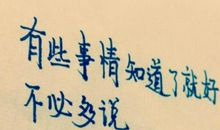 有些事情知道了就好
不必多说